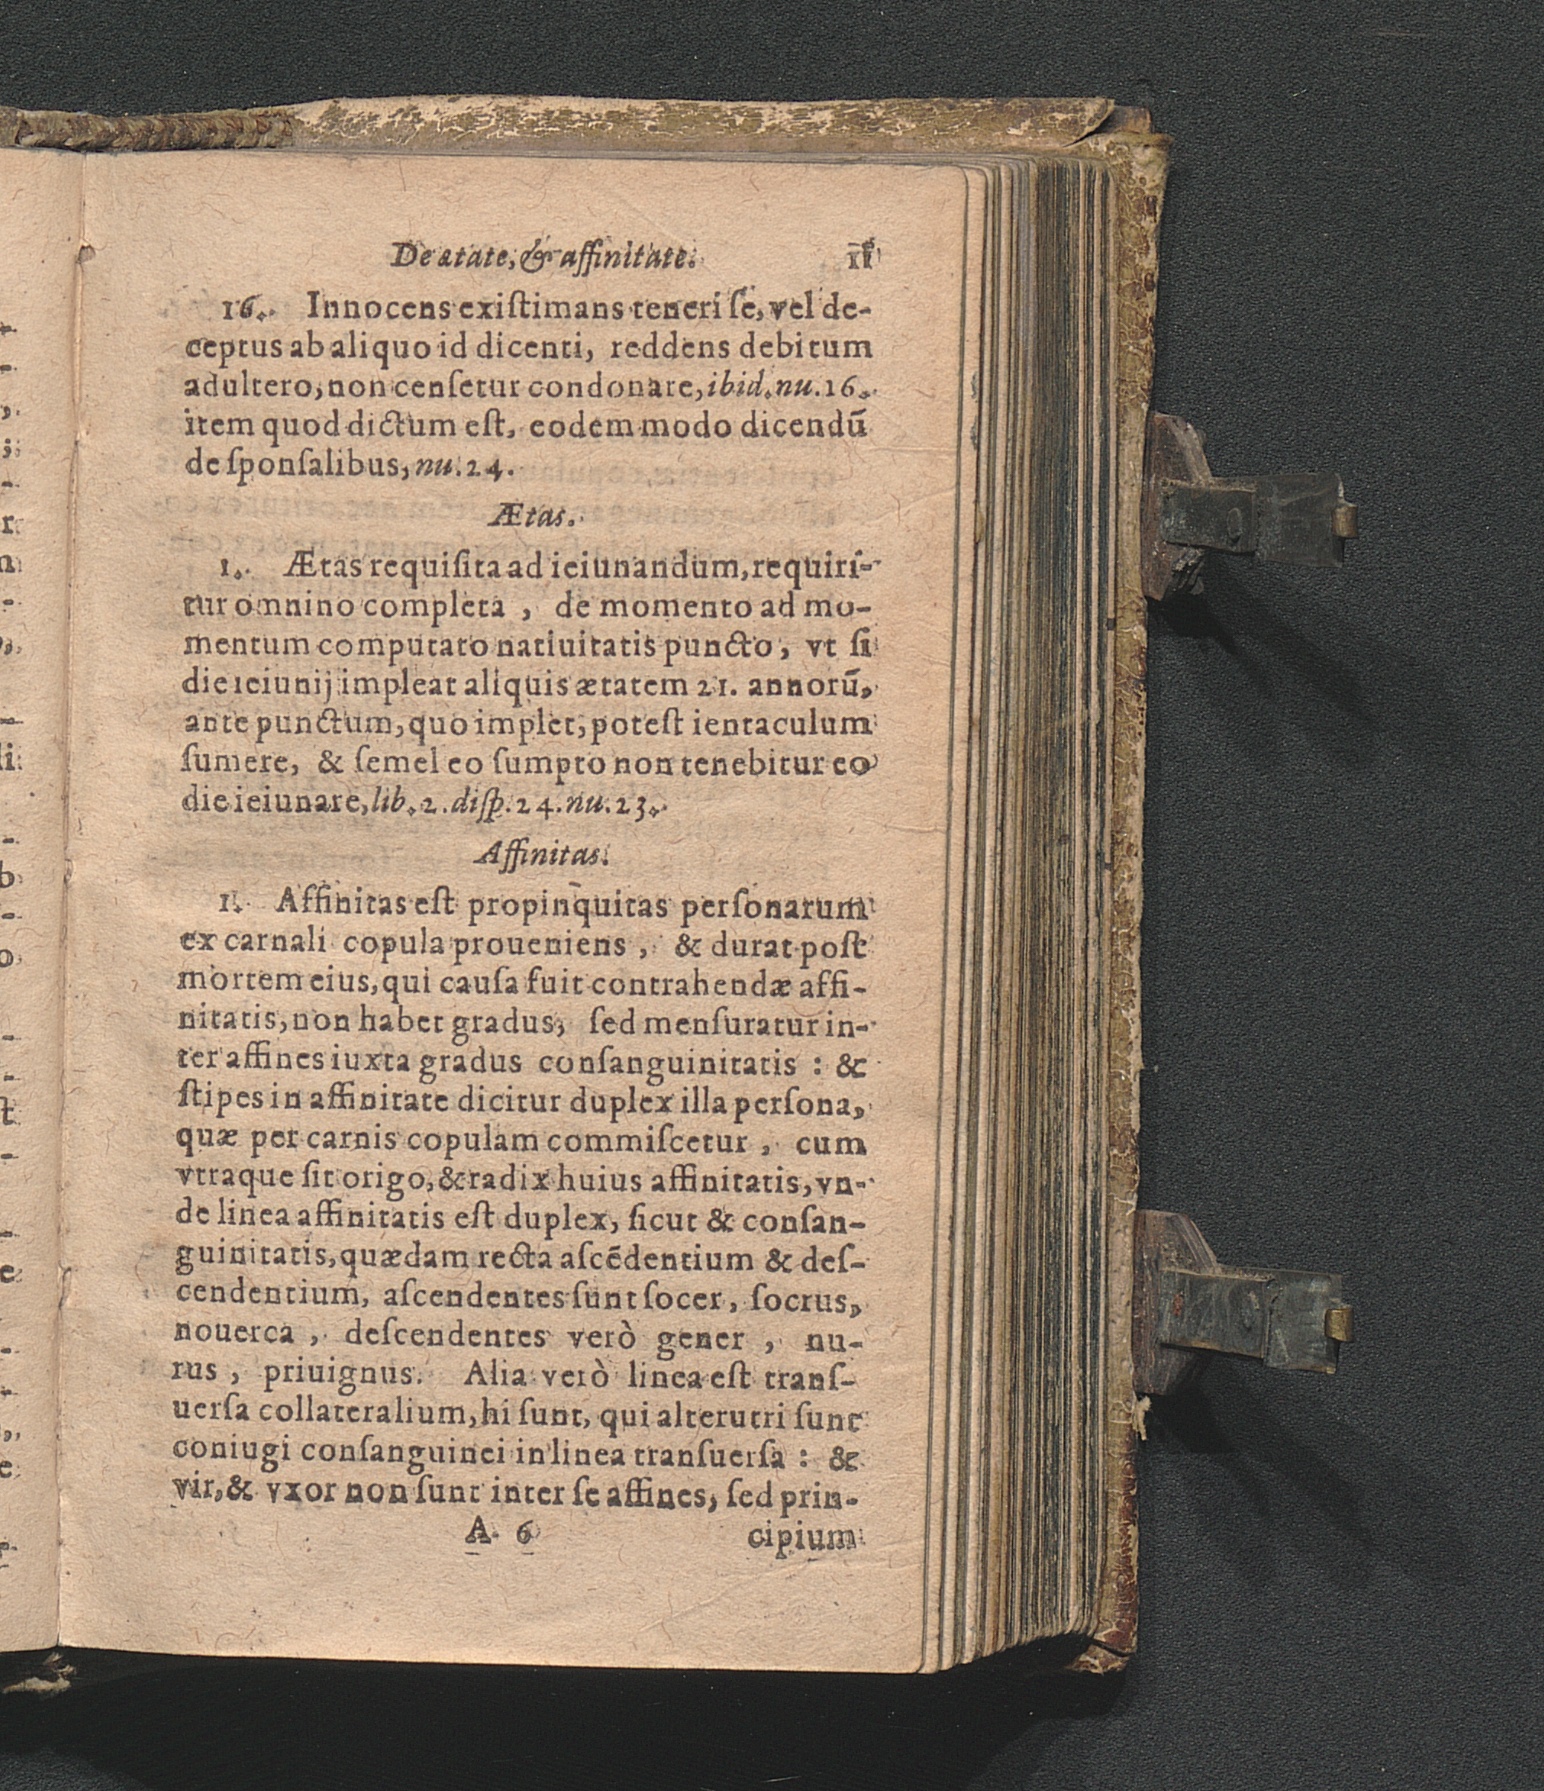 De ætate, & affinitate. 11
16. Innocens exiſtimans teneri ſe, vel de-
ceptus ab aliquo id dicenti, reddens debitum
adultero, non cenſetur condonare, ibid. nu. 16.
item quod dictum eſt, eodem modo dicendū
de ſponſalibus, nu. 24.
Ætas.
1. Ætas requiſita ad ieiunandum, requiri-
tur omnino completa, de momento ad mo-
mentum computato natiuitatis puncto, vt ſi
die ieiunij impleat aliquis ætatem 21. annorū,
ante punctum, quo implet, poteſt ientaculum
ſumere, & ſemel eo ſumpto non tenebitur eo
die ieiunare, lib. 2. diſp. 24. nu. 23.
Affinitas.
1. Affinitas eſt propinquitas perſonarum
ex carnali copula proueniens, & durat poſt
mortem eius, qui cauſa fuit contrahendæ affi-
nitatis, non habet gradus, ſed menſuratur in-
ter affines iuxta gradus conſanguinitatis : &
ſtipes in affinitate dicitur duplex illa perſona,
quæ per carnis copulam commiſcetur, cum
vtraque ſit origo, & radix huius affinitatis, vn-
de linea affinitatis eſt duplex, ſicut & conſan-
guinitatis, quædam recta aſcēdentium & deſ-
cendentium, aſcendentes ſunt ſocer, ſocrus,
nouerca, deſcendentes verò gener, nu-
rus, priuignus. Alia verò linea eſt tranſ-
uerſa collateralium, hi ſunt, qui alterutri ſunt
coniugi conſanguinei in linea tranſuerſa : &
vir, & vxor non ſunt inter ſe affines, ſed prin-
A 6 cipium